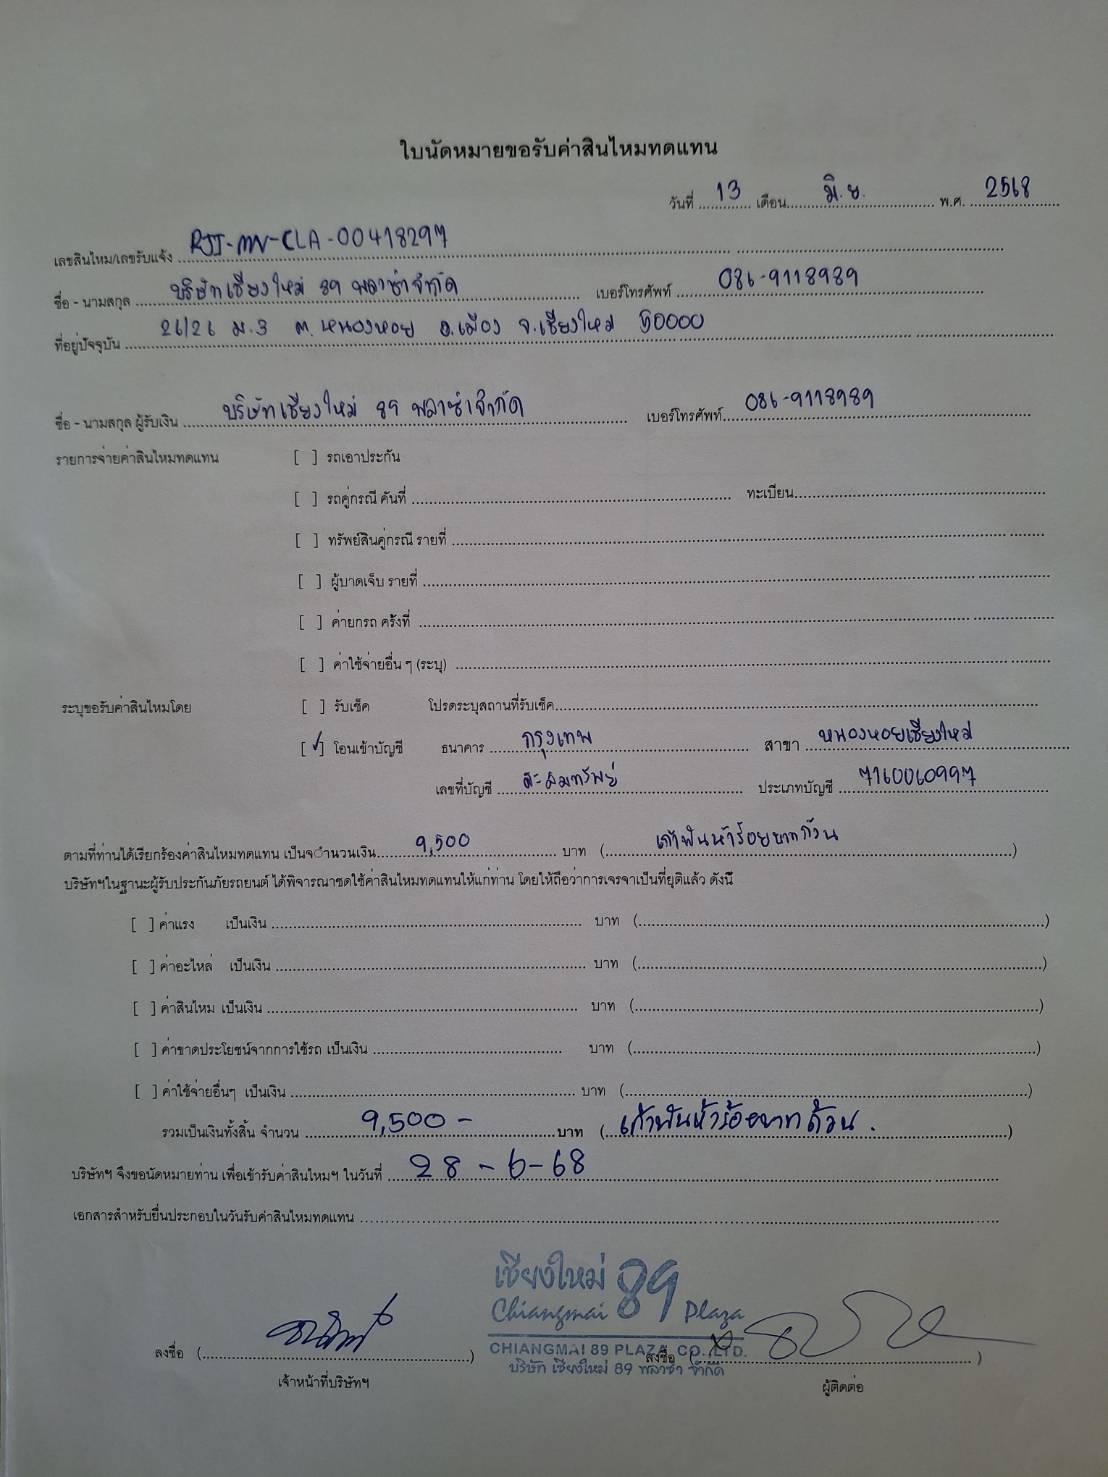 ใบนัดหมายขอรับค่าสินไหมทดแทน
วันที่ 13 เดือน มิ.ย. พ.ศ. 2568
เลขสินไหม/เลขรับแจ้ง RJI-MV-CLA-00418297
ชื่อ - นามสกุล บริษัทเชียงใหม่ 89 พลาซ่าจำกัด เบอร์โทรศัพท์ 086-9118989
ที่อยู่ปัจจุบัน 26/26 ม.3 ต.หนองหอย อ.เมือง จ.เชียงใหม่ 50000
ชื่อ - นามสกุล ผู้รับเงิน บริษัทเชียงใหม่ 89 พลาซ่าจำกัด เบอร์โทรศัพท์ 086-9118989
รายการจ่ายค่าสินไหมทดแทน [ ] รถเอาประกัน
[ ] รถคู่กรณี คันที่ ทะเบียน
[ ] ทรัพย์สินคู่กรณี รายที่
[ ] ผู้บาดเจ็บ รายที่
[ ] ค่ายกรถ ครั้งที่
[ ] ค่าใช้จ่ายอื่น ๆ (ระบุ)
ระบุขอรับค่าสินไหมโดย [ ] รับเช็ค โปรดระบุสถานที่รับเช็ค
[✓] โอนเข้าบัญชี ธนาคาร กรุงเทพ สาขา หนองหอยเชียงใหม่
เลขที่บัญชี สะสมทรัพย์ ประเภทบัญชี 7160060997
ตามที่ท่านได้เรียกร้องค่าสินไหมทดแทน เป็นจำนวนเงิน 9,500 บาท (เก้าพันห้าร้อยบาทถ้วน)
บริษัทฯในฐานะผู้รับประกันภัยรถยนต์ ได้พิจารณาชดใช้ค่าสินไหมทดแทนให้แก่ท่าน โดยให้ถือว่าการเจรจาเป็นที่ยุติแล้ว ดังนี้
[ ] ค่าแรง เป็นเงิน บาท ( )
[ ] ค่าอะไหล่ เป็นเงิน บาท ( )
[ ] ค่าสินไหม เป็นเงิน บาท ( )
[ ] ค่าขาดประโยชน์จากการใช้รถ เป็นเงิน บาท ( )
[ ] ค่าใช้จ่ายอื่นๆ เป็นเงิน บาท ( )
รวมเป็นเงินทั้งสิ้น จำนวน 9,500 - บาท (เก้าพันห้าร้อยบาทถ้วน.)
บริษัทฯ จึงขอนัดหมายท่าน เพื่อเข้ารับค่าสินไหมฯ ในวันที่ 28-6-68
เอกสารสำหรับยื่นประกอบในวันรับค่าสินไหมทดแทน
เชียงใหม่ 89
Chiangmai Plaza
CHIANGMAI 89 PLAZA CO.,LTD.
บริษัท เชียงใหม่ 89 พลาซ่า จำกัด
ลงชื่อ ( ) ลงชื่อ ( )
เจ้าหน้าที่บริษัทฯ ผู้ติดต่อ